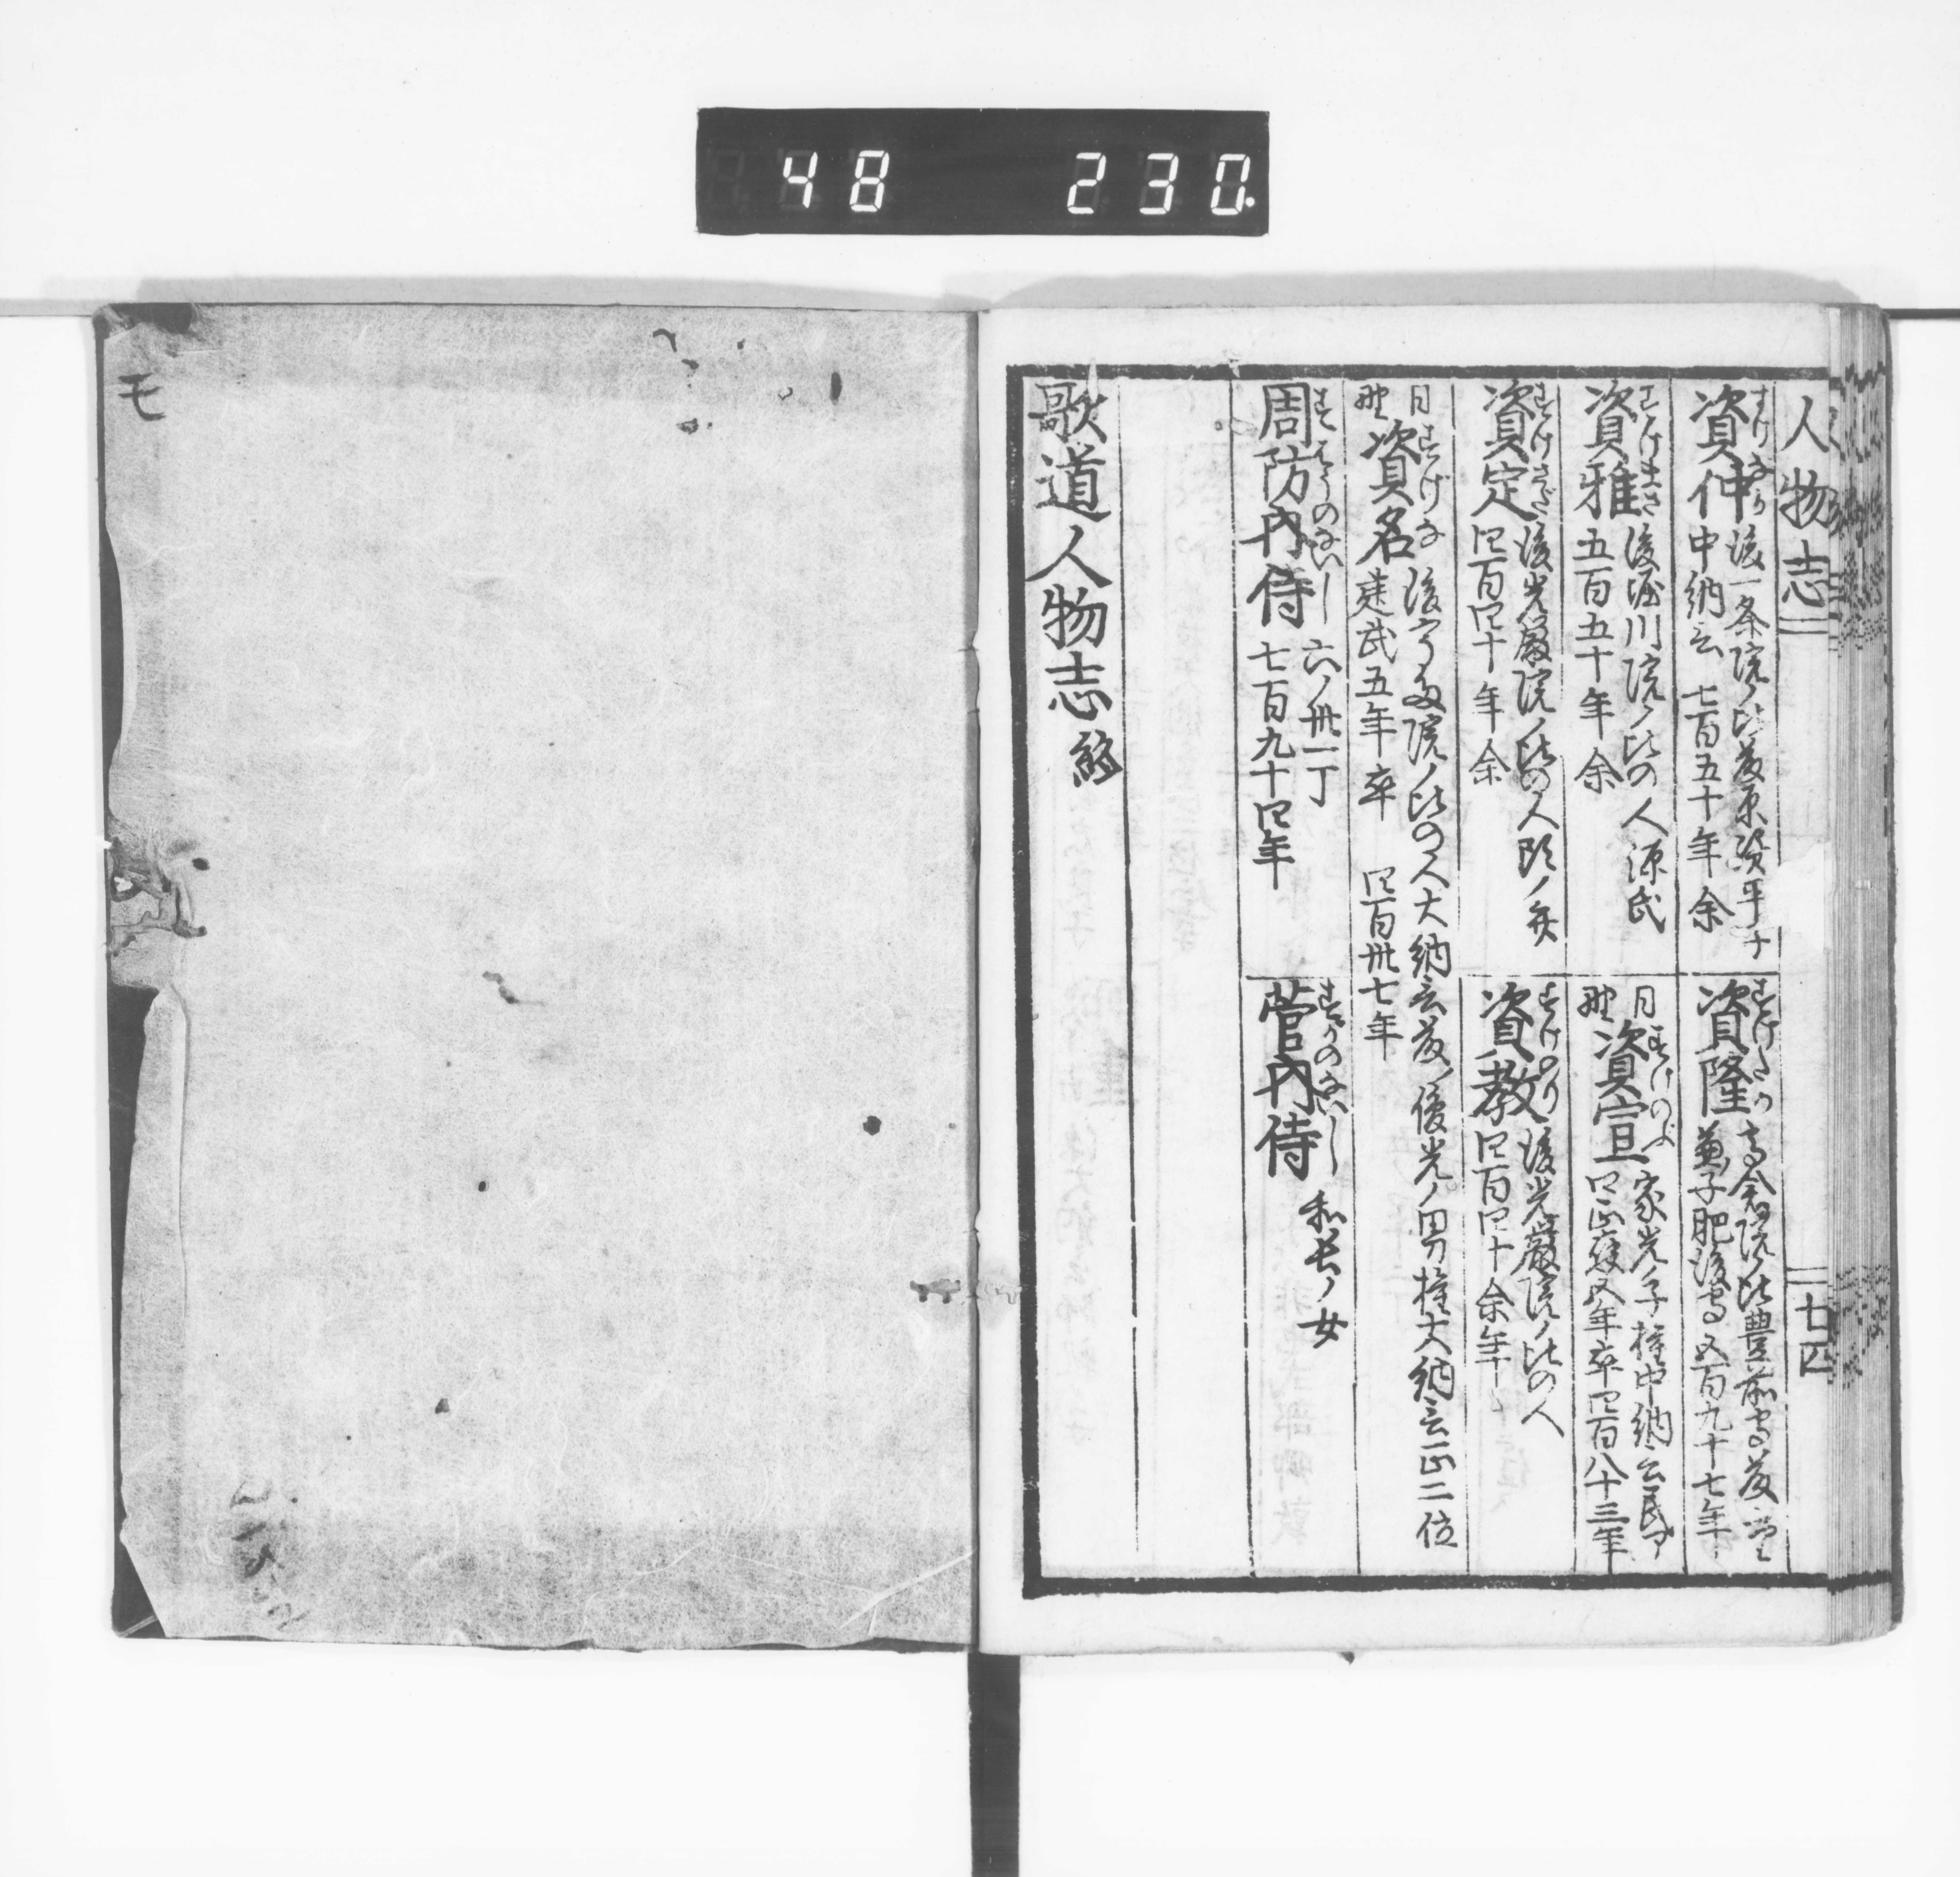 48 230.
人物志
七四
すけなか
資仲
後一条院ノ比藤原資平ノ
中納言 七百五十年余
すけたか
資隆
高倉院ノ比豊前守藤
兼子肥後守 五百九十七年
すけまさ
資雅
後堀川院ノ比の人 源氏
五百五十年余
日野
すけのぶ
資宣
家光ノ子権中納言民部
正應五年卒四百八十三年
すけさだ
資定
後光嚴院ノ比の人
四百四十年余
すけのり
資教
後光嚴院ノ比の人
四百四十余年
日野
すけな
資名
後宇多院ノ比の人大納言藤ノ俊光ノ男権大納言正二位
建武五年卒 四百卅七年
すはうのないし
周防内侍
六ノ卅一丁
七百九十四年
すがのないし
菅内侍
和長ノ女
歌道人物志終
モ